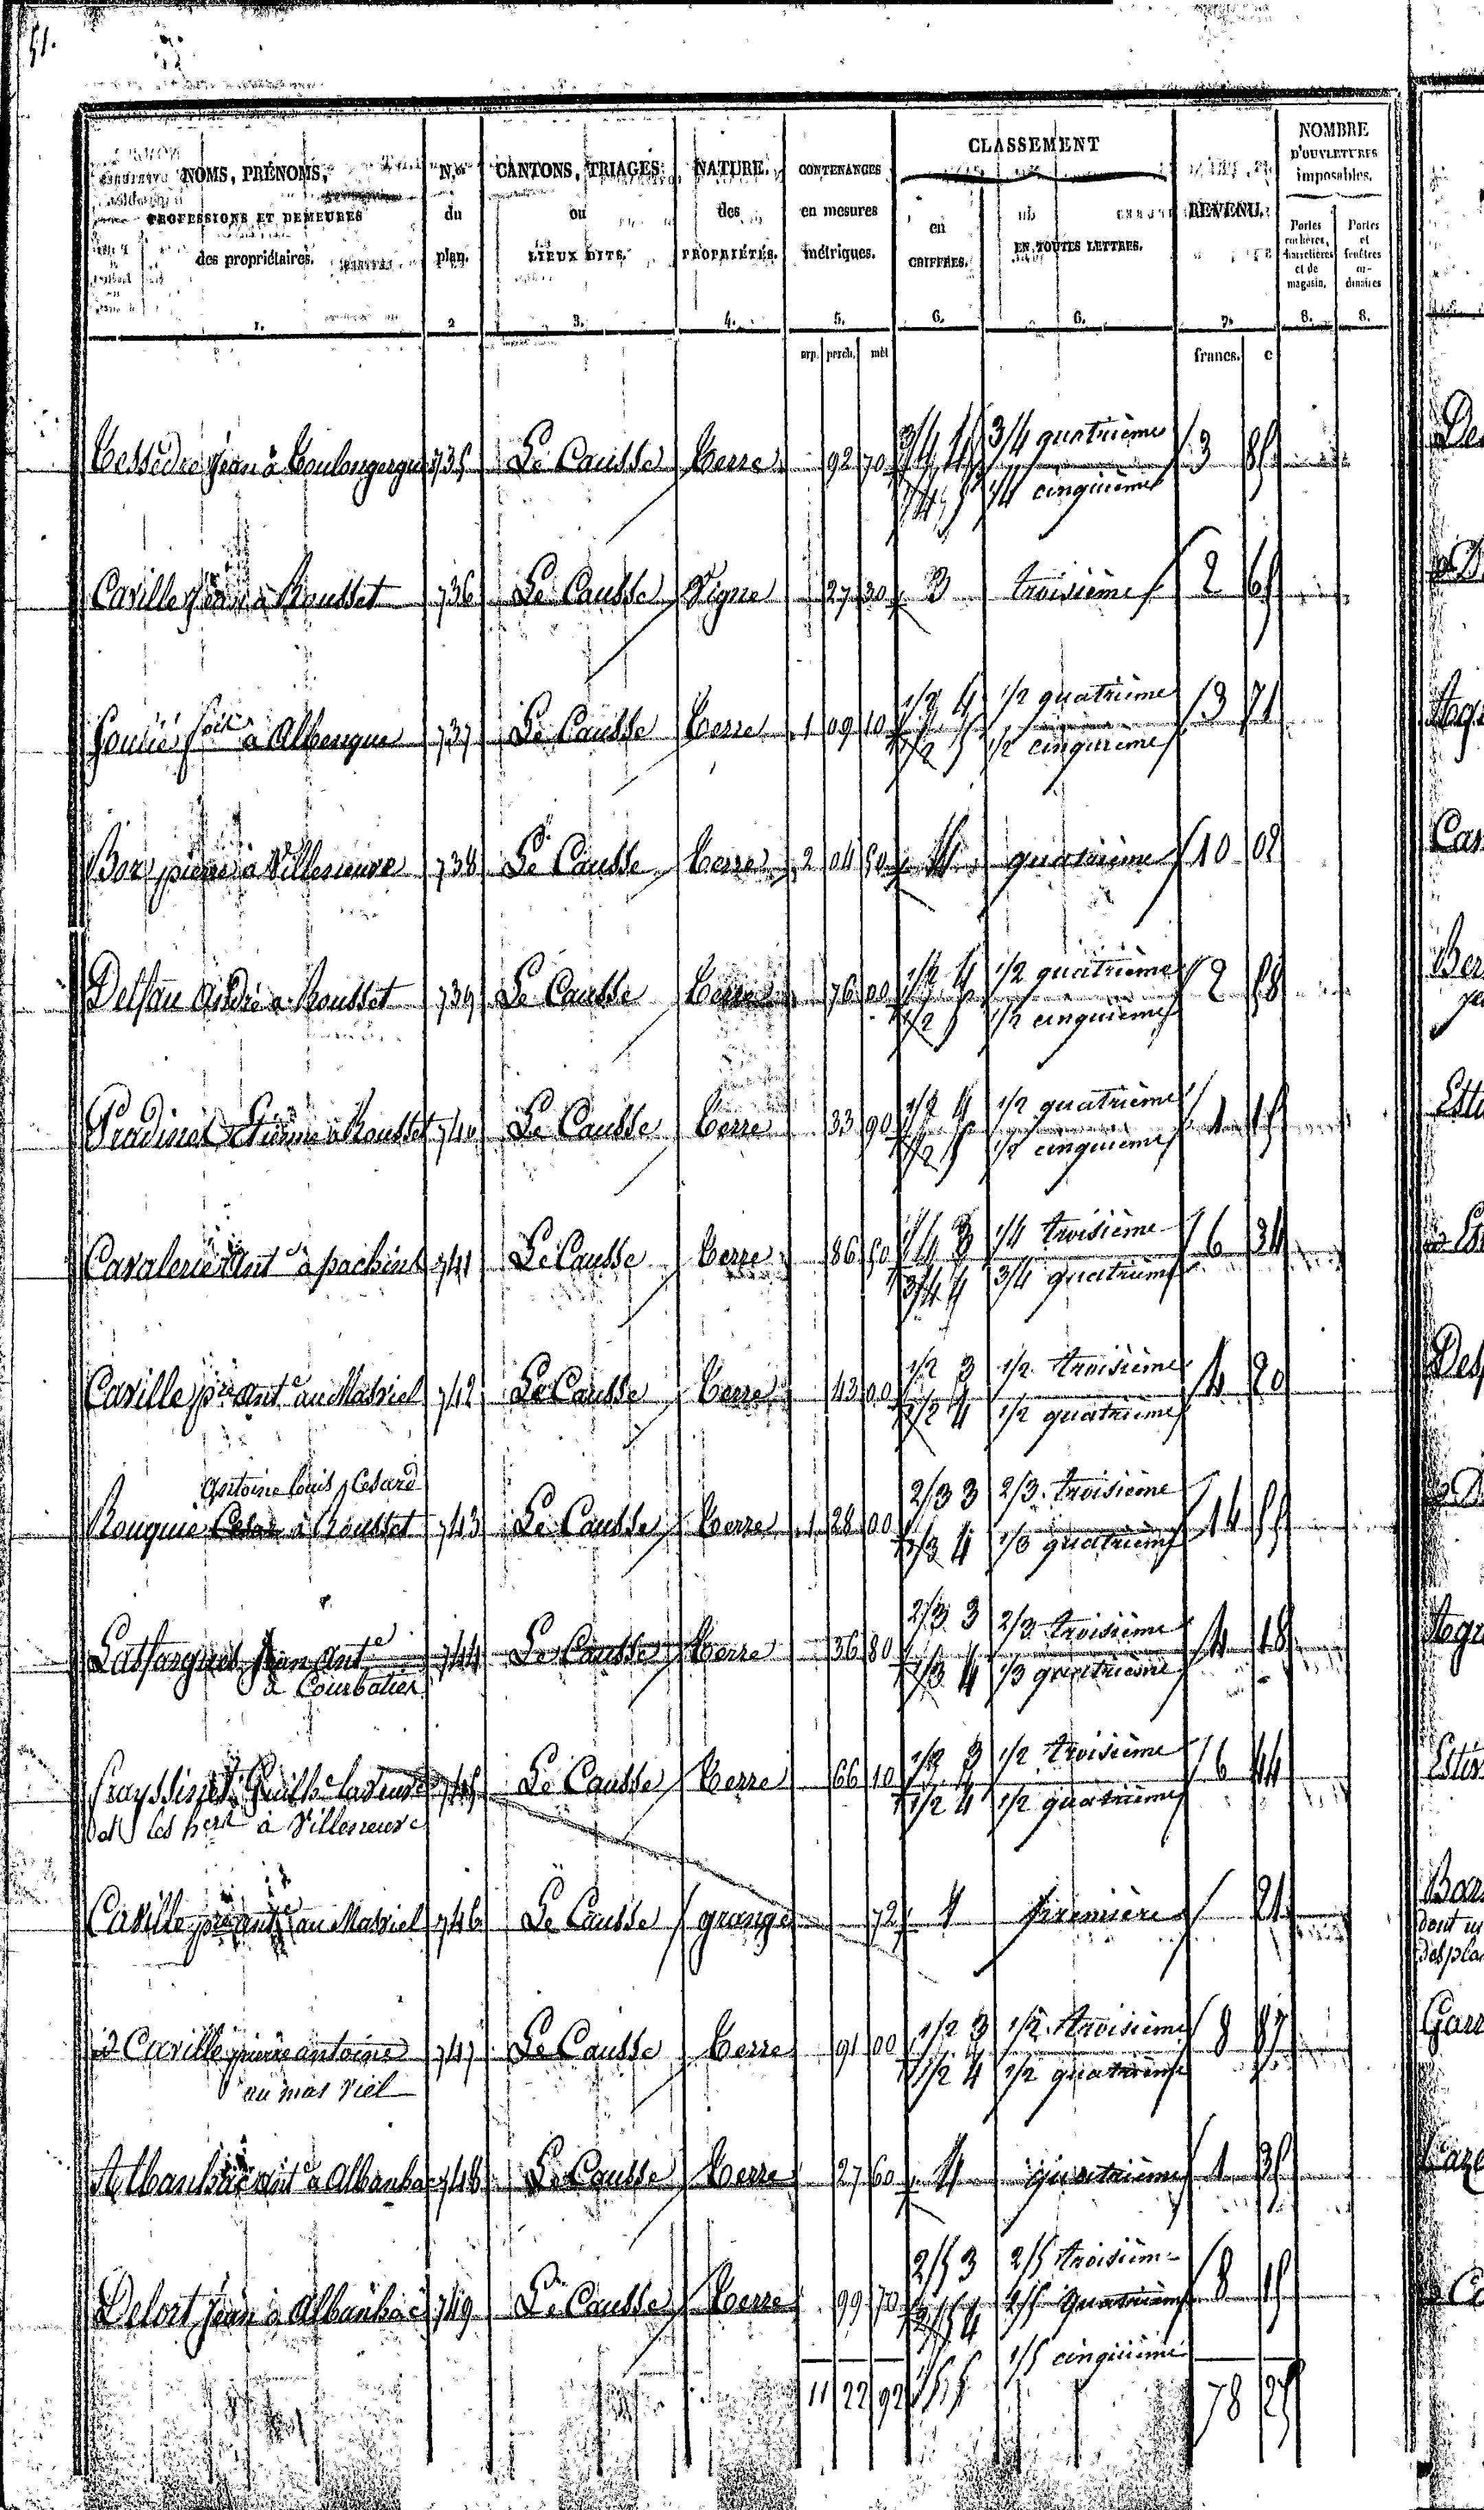 51.
NOMS, PRÉNOMS, PROFESSIONS ET DEMEURES des propriétaires. 1.
N.os du plan. 2
CANTONS, TRIAGES ou LIEUX DITS. 3.
NATURE des PROPRIÉTÉS. 4.
CONTENANCES en mesures métriques. 5.
CLASSEMENT
en CHIFFRES. 6.
EN TOUTES LETTRES. 6.
REVENU. 7.
NOMBRE D'OUVERTURES imposables.
Portes cochères, charretières et de magasin. 8.
Portes et fenêtres ordinaires 8.
arp. perch. mèt francs. c
Tessedre Jean à Toulongergue 735 Le Causse Terre 92 70 3/4 4 3/4 quatrième 3 85
1/4 5 1/4 cinquième
Caville Jean à Rousset 736 Le Causse Vigne 27 30 3 troisième 2 65
à Albenque 737 Le Causse Terre 1 09 10 1/2 4 1/2 quatrième 3 71
1/2 5 1/2 cinquième
Bor pierre à Villeneuve 738 Le Causse Terre 2 04 50 4 quatrième 10 02
Delfau André à Rousset 739 Le Causse Terre 76 00 1/2 4 1/2 quatrième 2 58
1/2 5 1/2 cinquième
Pradines Etienne à Rousset 740 Le Causse Terre 33 90 1/2 4 1/2 quatrième 1 15
1/2 5 1/2 cinquième
Cavalerie Ant.e à pachins 741 Le Causse Terre 86 50 1/4 3 1/4 troisième 6 34
3/4 4 3/4 quatrième
Caville p.re ant.e au Masviel 742 Le Causse Terre 43 00 1/2 3 1/2 troisième 4 20
1/2 4 1/2 quatrième
Antoine louis Cesard
Rouquié Cesar à Rousset 743 Le Causse Terre 1 28 00 2/3 3 2/3 troisième 14 55
1/3 4 1/3 quatrième
Laffargues Jean Ant.e 744 Le Causse Terre 36 80 2/3 3 2/3 troisième 4 18
à Courbatiés 1/3 4 1/3 quatrième
Frayssinet Guilh.e la veuve 745 Le Causse Terre 66 10 1/2 3 1/2 troisième 6 44
et les her.s à Villeneuve 1/2 4 1/2 quatrième
Caville p.re ant.e au Masviel 746 Le Causse grange 72 1 première 21
d Caville pierre antoine 747 Le Causse Terre 91 00 1/2 3 1/2 troisième 8 87
au mas viel 1/2 4 1/2 quatrième
Albanhac ant.e à Albanhac 748 Le Causse Terre 27 60 4 quatrième 1 35
Delort Jean à Albanhac 749 Le Causse Terre 99 70 2/5 3 2/5 troisième 8 15
2/5 4 2/5 quatrième
1/5 5 1/5 cinquième
11 22 92 78 25